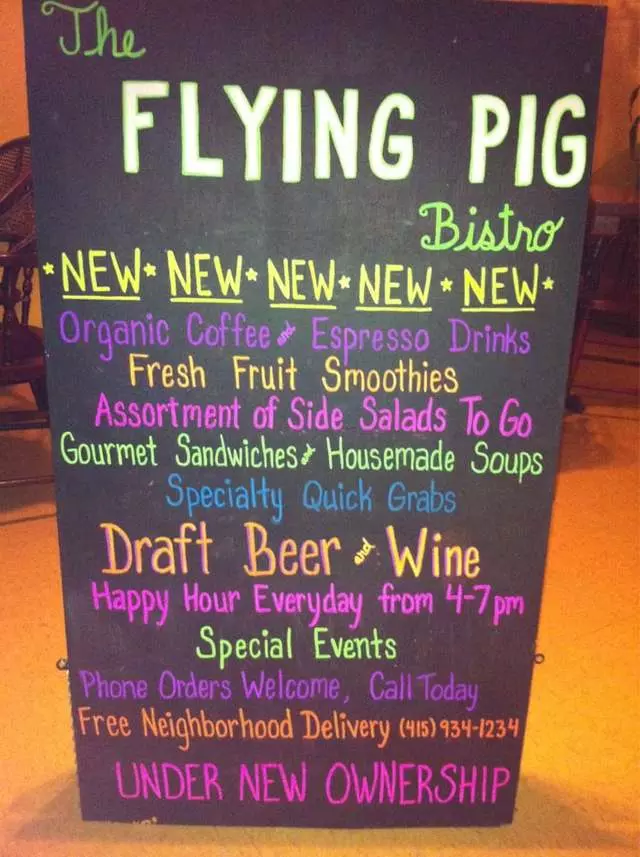 The
FLYING PIG
Bistro
*NEW* NEW* NEW* NEW* NEW*
Organic Coffee and Espresso Drinks
Fresh Fruit Smoothies
Assortment of Side Salads To Go
Gourmet Sandwiches & Housemade Soups
Specialty Quick Grabs
Draft Beer and Wine
Happy Hour Everyday from 4-7pm
Special Events
Phone Orders Welcome, Call Today
Free Neighborhood Delivery (415) 934-1234
UNDER NEW OWNERSHIP